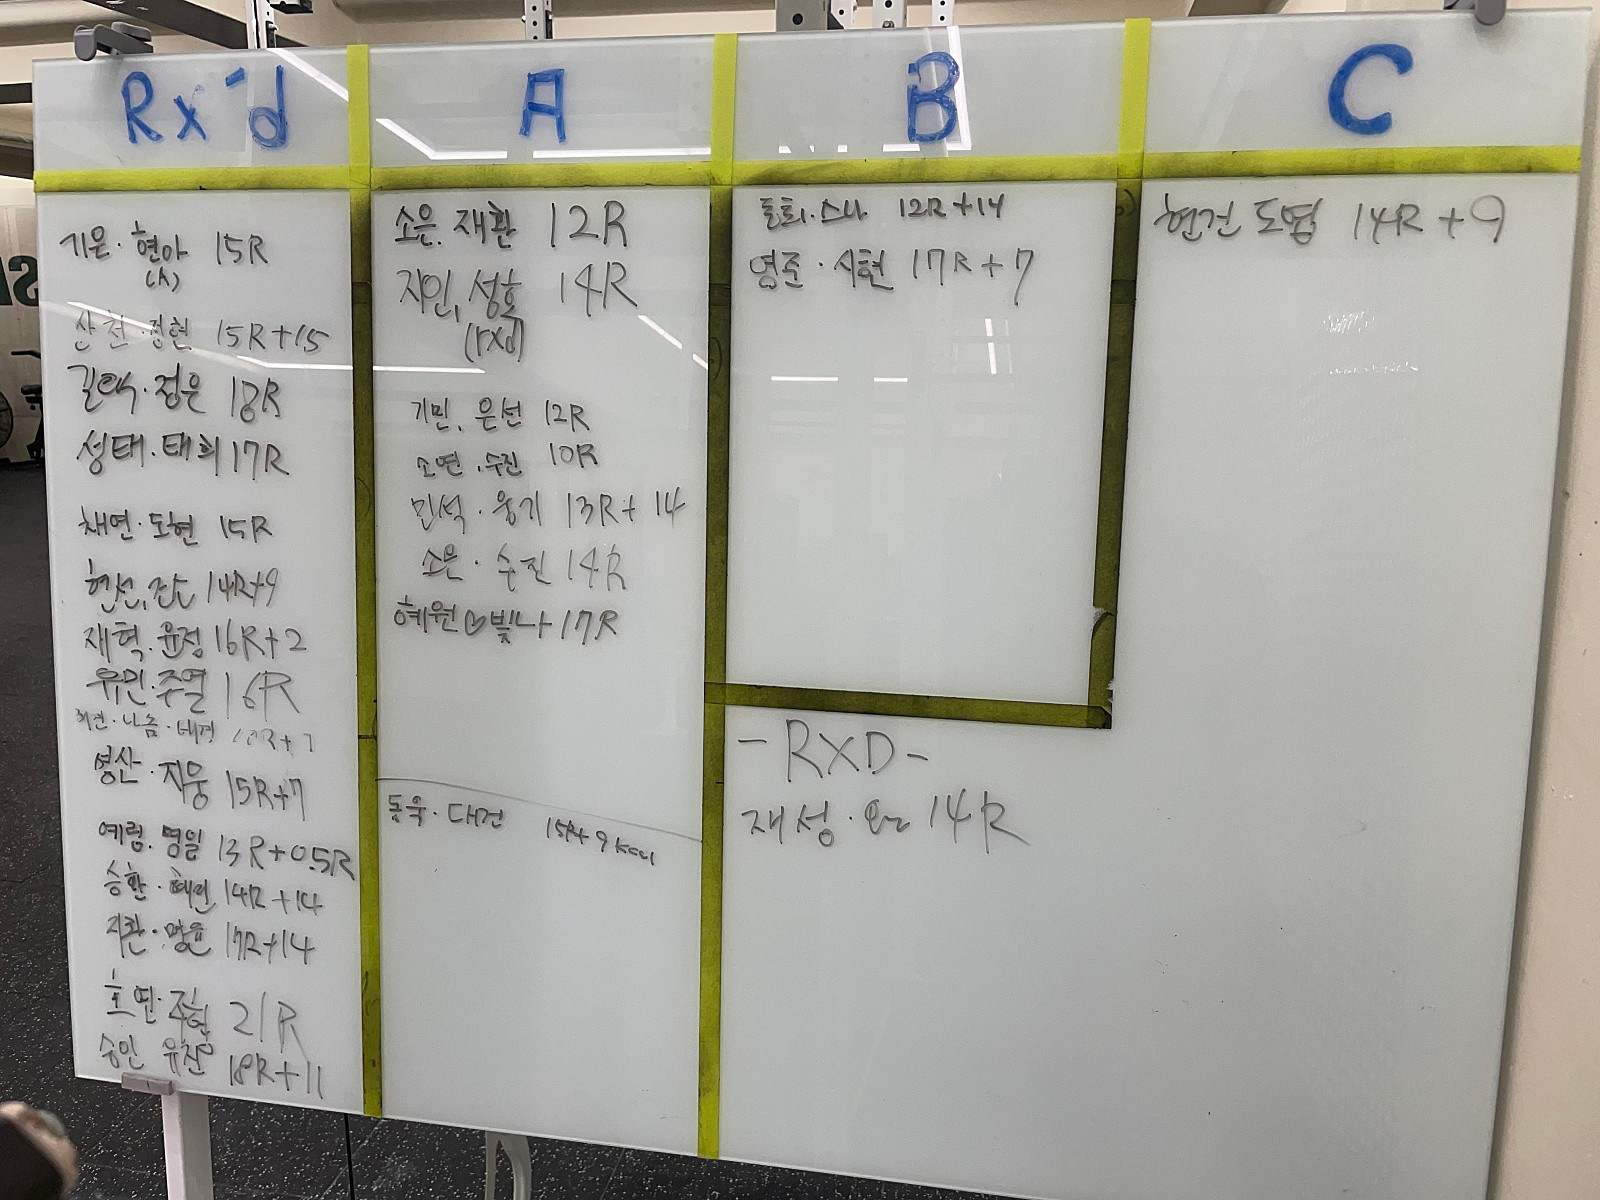 Rx'd
기운·현아 15R
(A)
산천·정현 15R+15
길택·정은 18R
성태·태희 17R
채연·도현 15R
현선, 14R+9
재혁·윤정 16R+2
유민·주열 16R
나눔
영산·지웅 15R+7
예림, 명일 13R+0.5R
승환· 14R+14
지환· 17R+14
호연· 21R
승민 유진 18R+11
A
소은, 재환 12R
지인, 성호 14R
(rxd)
기민, 은선 12R
소연, 수진 10R
민석·웅기 13R+14
소은·수진 14R
혜원♡빛나 17R
동욱·대건 15R+9 kcal
B
동희·스나 12R+14
영준·시현 17R+7
-RXD-
재성· 14R
C
현건 도엽 14R+9